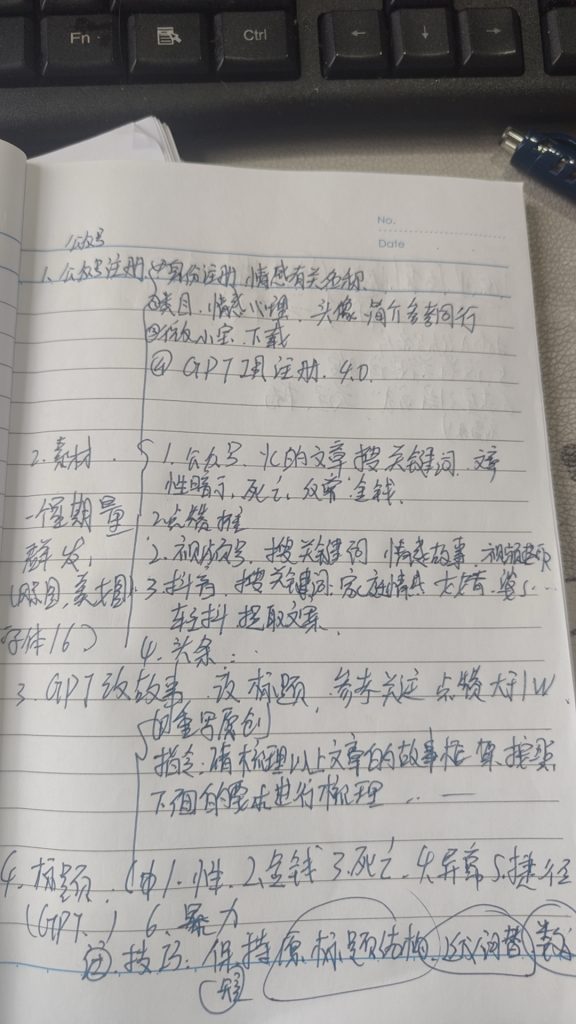 Fn
Ctrl
←
↓
→
No.
Date
公众号
1. 公众号注册 ①身份注册 情感有关名称
②类目,情感心理, 头像 简介多看同行
③ 小宝 下载
④ GPT 注册. 4.0.
2. 素材 1. 公众号. 的文章 搜关键词
性暗示, 死亡, 金钱.
一个星期量 2 点赞 推
群发, 2. 视频号, 搜关键词 情感故事,
字体16) 3. 抖音, 搜关键词. 家庭情感
轻抖 提取文案.
4. 头条..
3. GPT改故事 改标题, 参考关注 点赞大于1W
的重写原创
指令: 请梳理以上文章的故事框架, 按照
下面的要求进行梳理 .. —
4. 标题. 1. 性. 2. 金钱 3. 死亡. 4. 异常 5. 捷径
(GPT.) 6. 暴力
技巧: 保持原标题结构, 词替